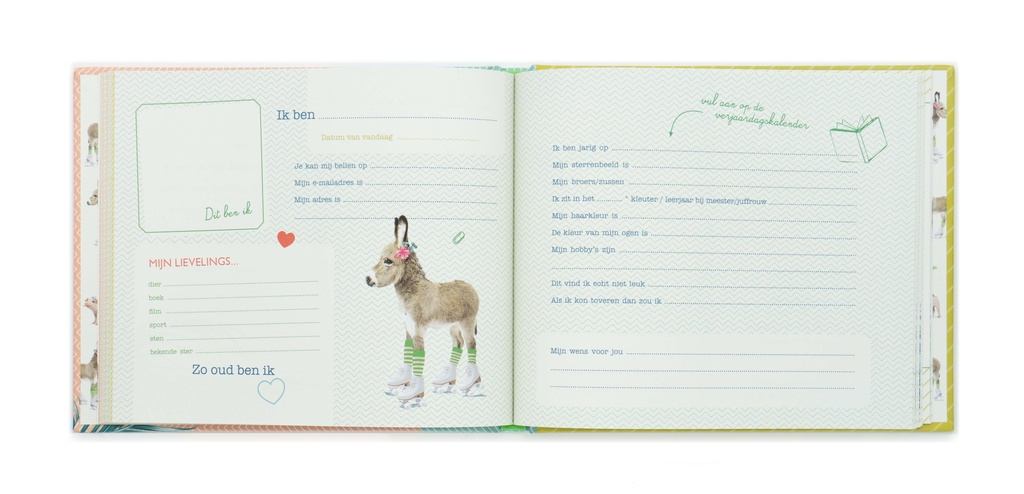 Dit ben ik
Ik ben
Datum van vandaag
Je kan mij bellen op
Mijn e-mailadres is
Mijn adres is
MIJN LIEVELINGS...
dier
boek
film
sport
eten
bekende ster
Zo oud ben ik
vul aan op de
verjaardagskalender
Ik ben jarig op
Mijn sterrenbeeld is
Mijn broers/zussen
Ik zit in het .......... ° kleuter / leerjaar bij meester/juffrouw
Mijn haarkleur is
De kleur van mijn ogen is
Mijn hobby's zijn
Dit vind ik echt niet leuk
Als ik kon toveren dan zou ik
Mijn wens voor jou